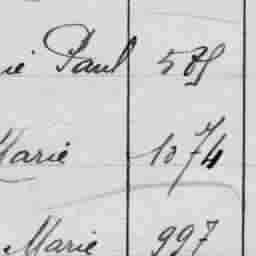 ie Paul 585
Marie 1074
Marie 997